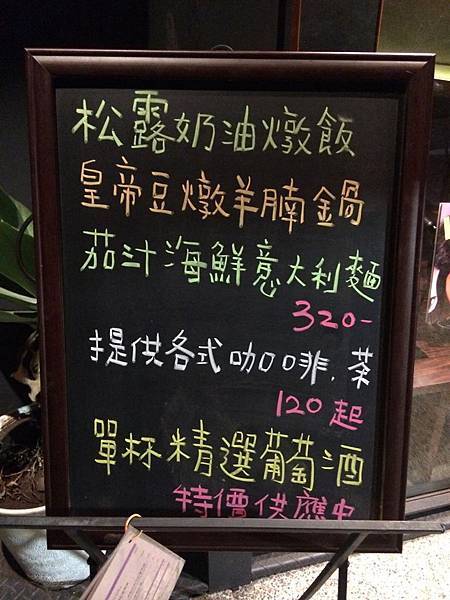 松露奶油燉飯
皇帝豆燉羊腩鍋
茄汁海鮮意大利麵
320-
提供各式咖啡.茶
120起
單杯精選葡萄酒
特價供應中